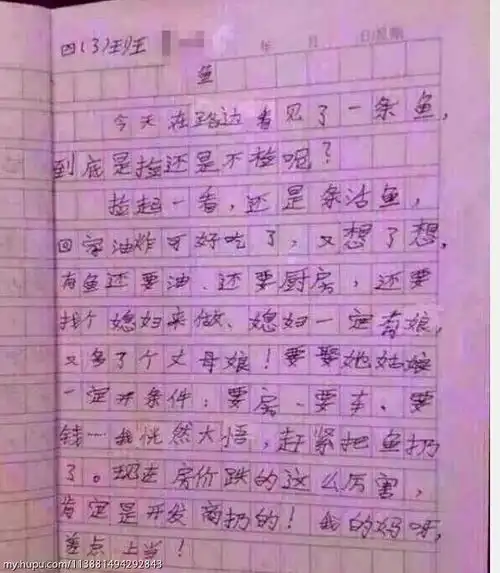 四(3)班 年 月 日 星期
鱼
今天在路边看见了一条鱼,
到底是捡还是不捡呢?
捡起一看,还是条活鱼,
回家油炸可好吃了,又想了想,
有鱼还要油、还要厨房,还要
找个媳妇来做、媳妇一定有娘,
又多了个丈母娘!要娶她姑娘
一定开条件:要房、要车、要
钱……我恍然大悟,赶紧把鱼扔
了。现在房价跌的这么厉害,
肯定是开发商扔的!我的妈呀,
差点上当!
my.hupu.com/113881494292843